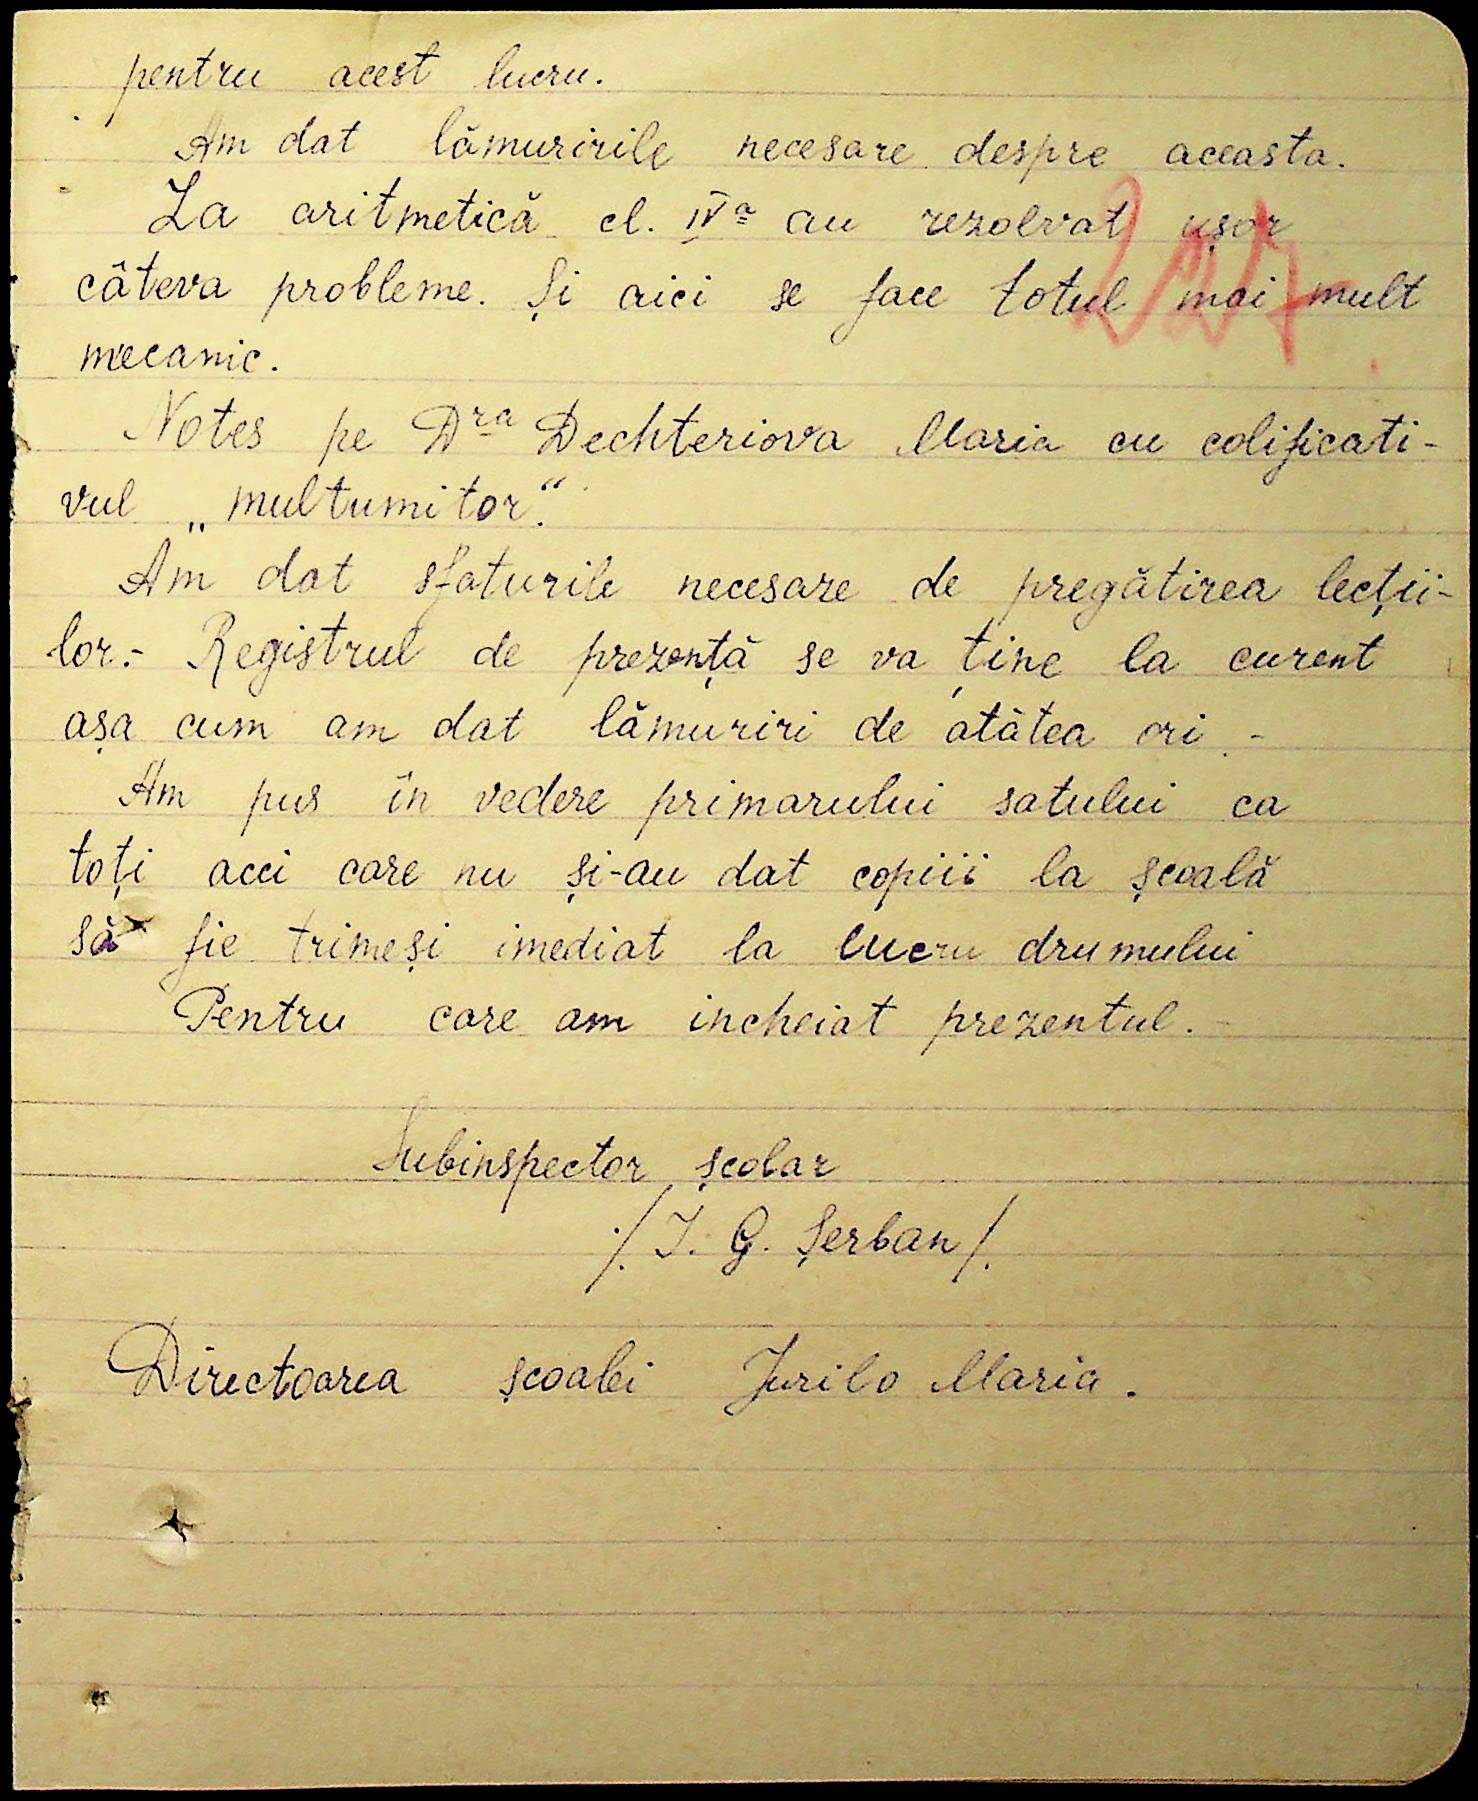 pentru acest lucru.
Am dat lămuririle necesare despre aceasta.
La aritmetică cl. IVª au rezolvat ușor
câteva probleme. Și aici se face totul mai mult
mecanic.
227
Notes pe Dra Dechteriova Maria cu colificati-
vul „multumitor".
Am dat sfaturile necesare de pregătirea lecții-
lor.- Registrul de prezență se va ține la curent
așa cum am dat lămuriri de atâtea ori.-
Am pus în vedere primarului satului ca
toți acci care nu și-au dat copiii la școală
să fie trimeși imediat la lucru drumului
Pentru care am incheiat prezentul.-
Subinspector școlar
./. I. G. Șerban /.
Directoarea școalei Jurilo Maria.